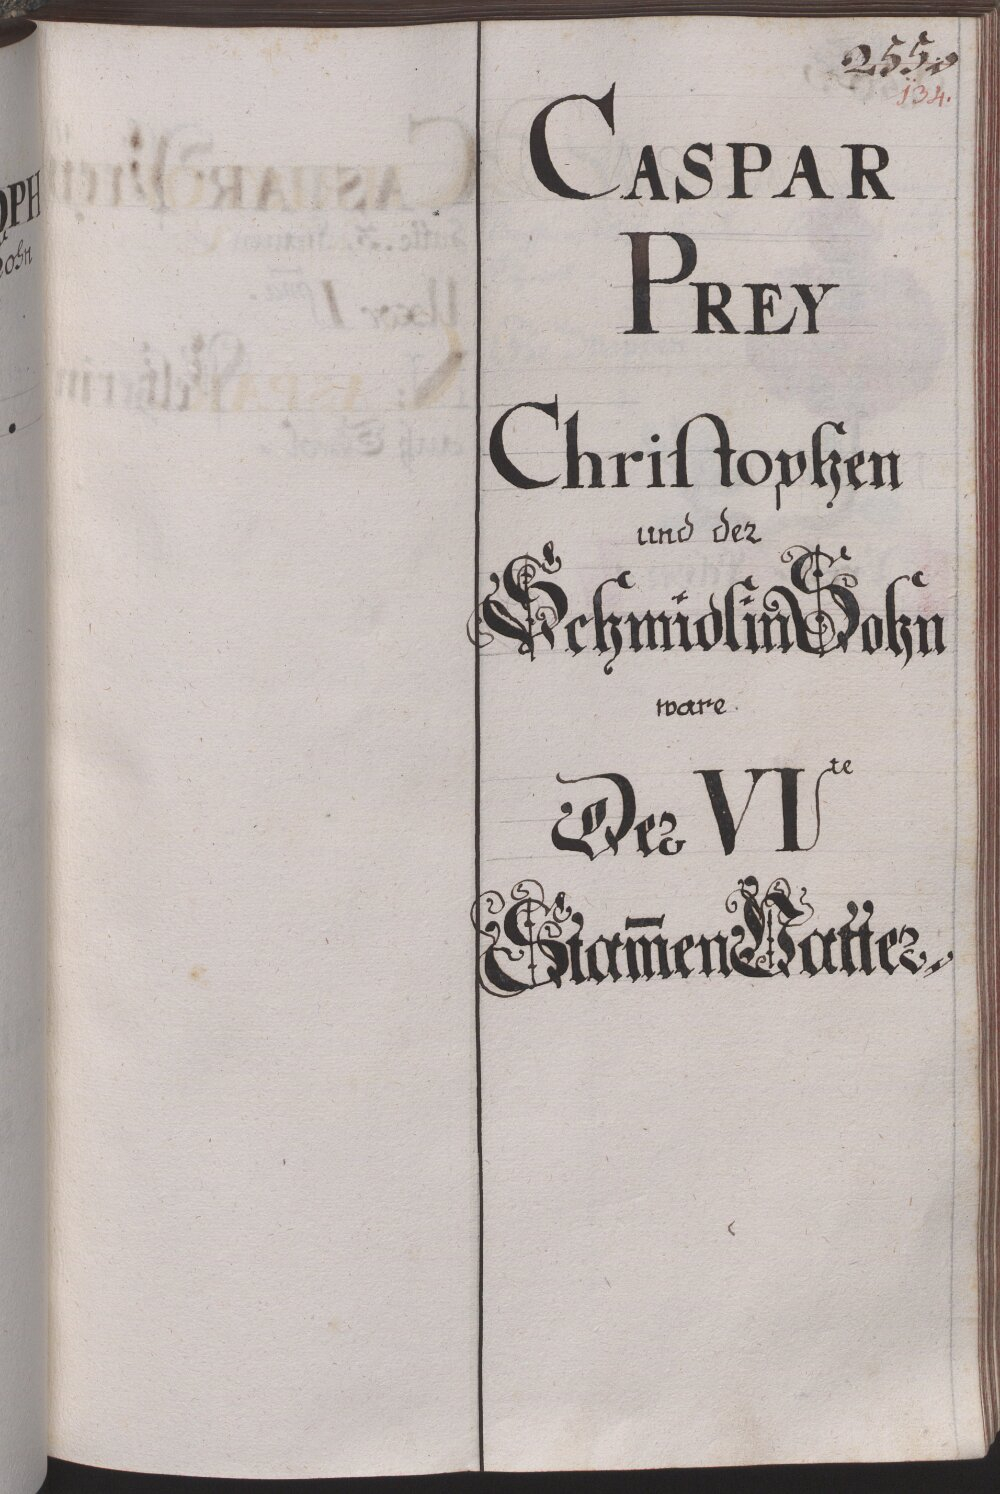 255.
134.
CASPAR
PREY
Christophen
und der
Schmidlin Sohn
ware
Der VI te
Stam̅en Vatter.
OPH